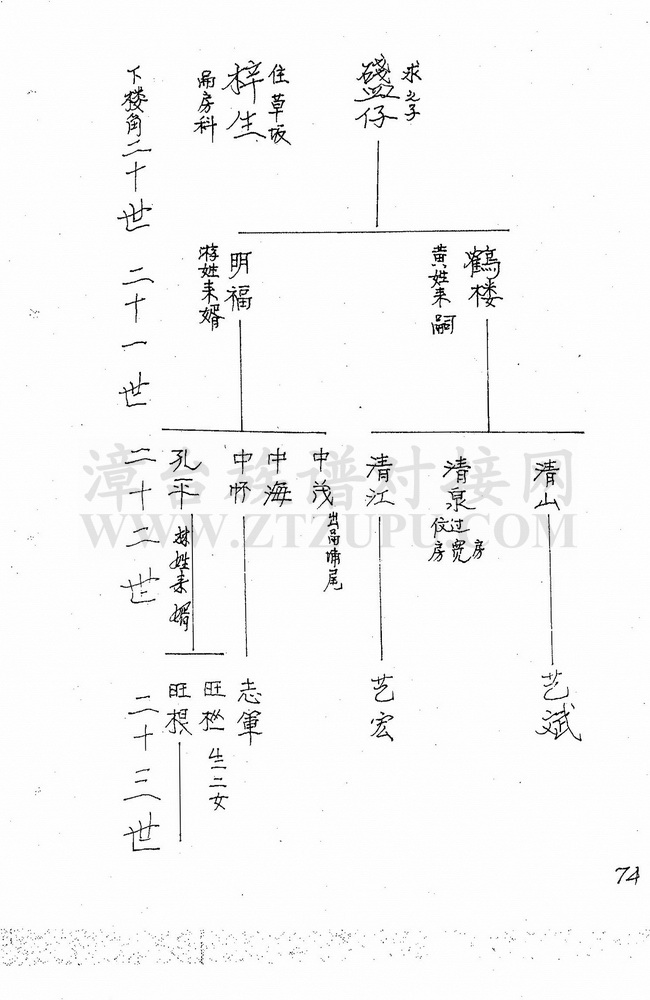 下楼角二十世
求之子
盏仔
住草坂
梓生
房科
二十一世
鹤楼
黄姓来嗣
明福
游姓来婿
二十二世
清山
清泉
过宽房
房
清江
中茂
出 埔尾
中海
中怀
孔平
林姓来婿
二十三世
艺斌
艺宏
志軍
旺松
生二女
旺根
74
漳台族谱对接网
WWW.ZTZUPU.COM